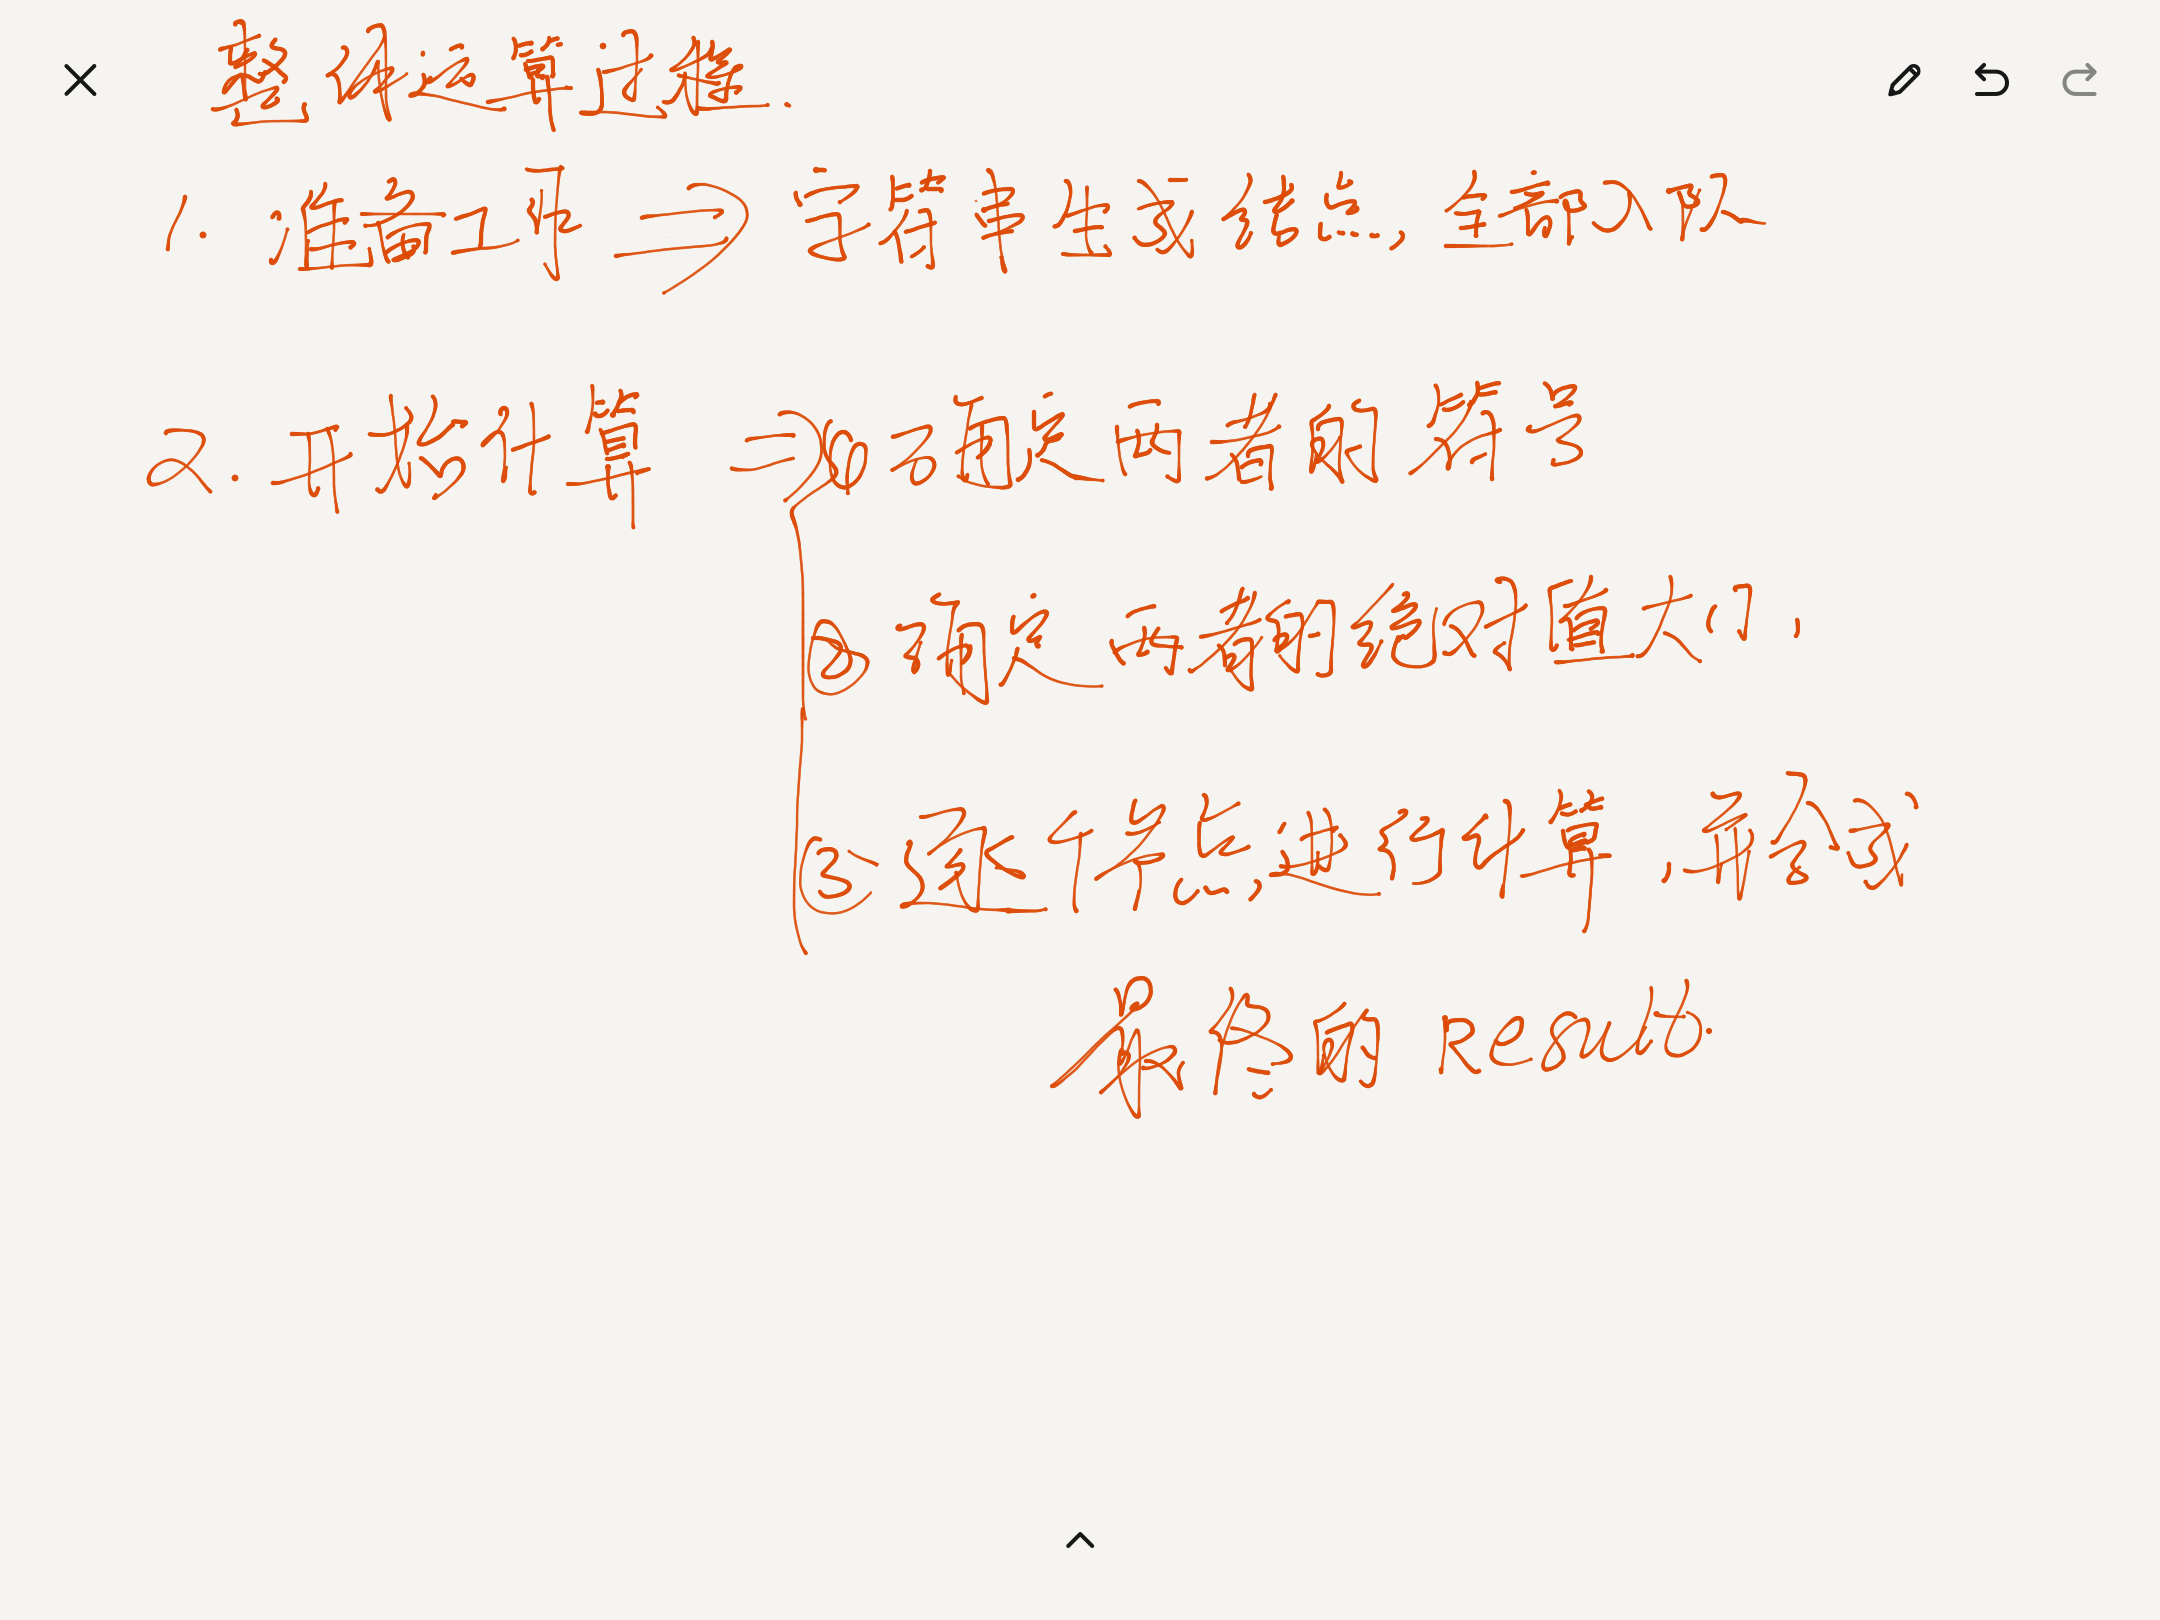 整体运算过程.
1. 准备工序 ⇒ 字符串生成结点, 全部入队
2. 开始计算 ⇒ ① 确定两者的符号
② 确定两者的绝对值大小,
③ 逐个结点进行计算, 并合成
最终的 Result.